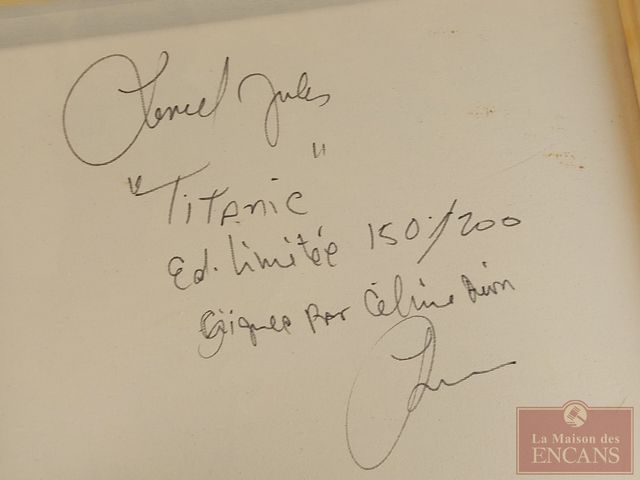 Daniel Jules
"Titanic"
Ed. limitée 150/200
Signée par Céline Dion
La Maison des
ENCANS